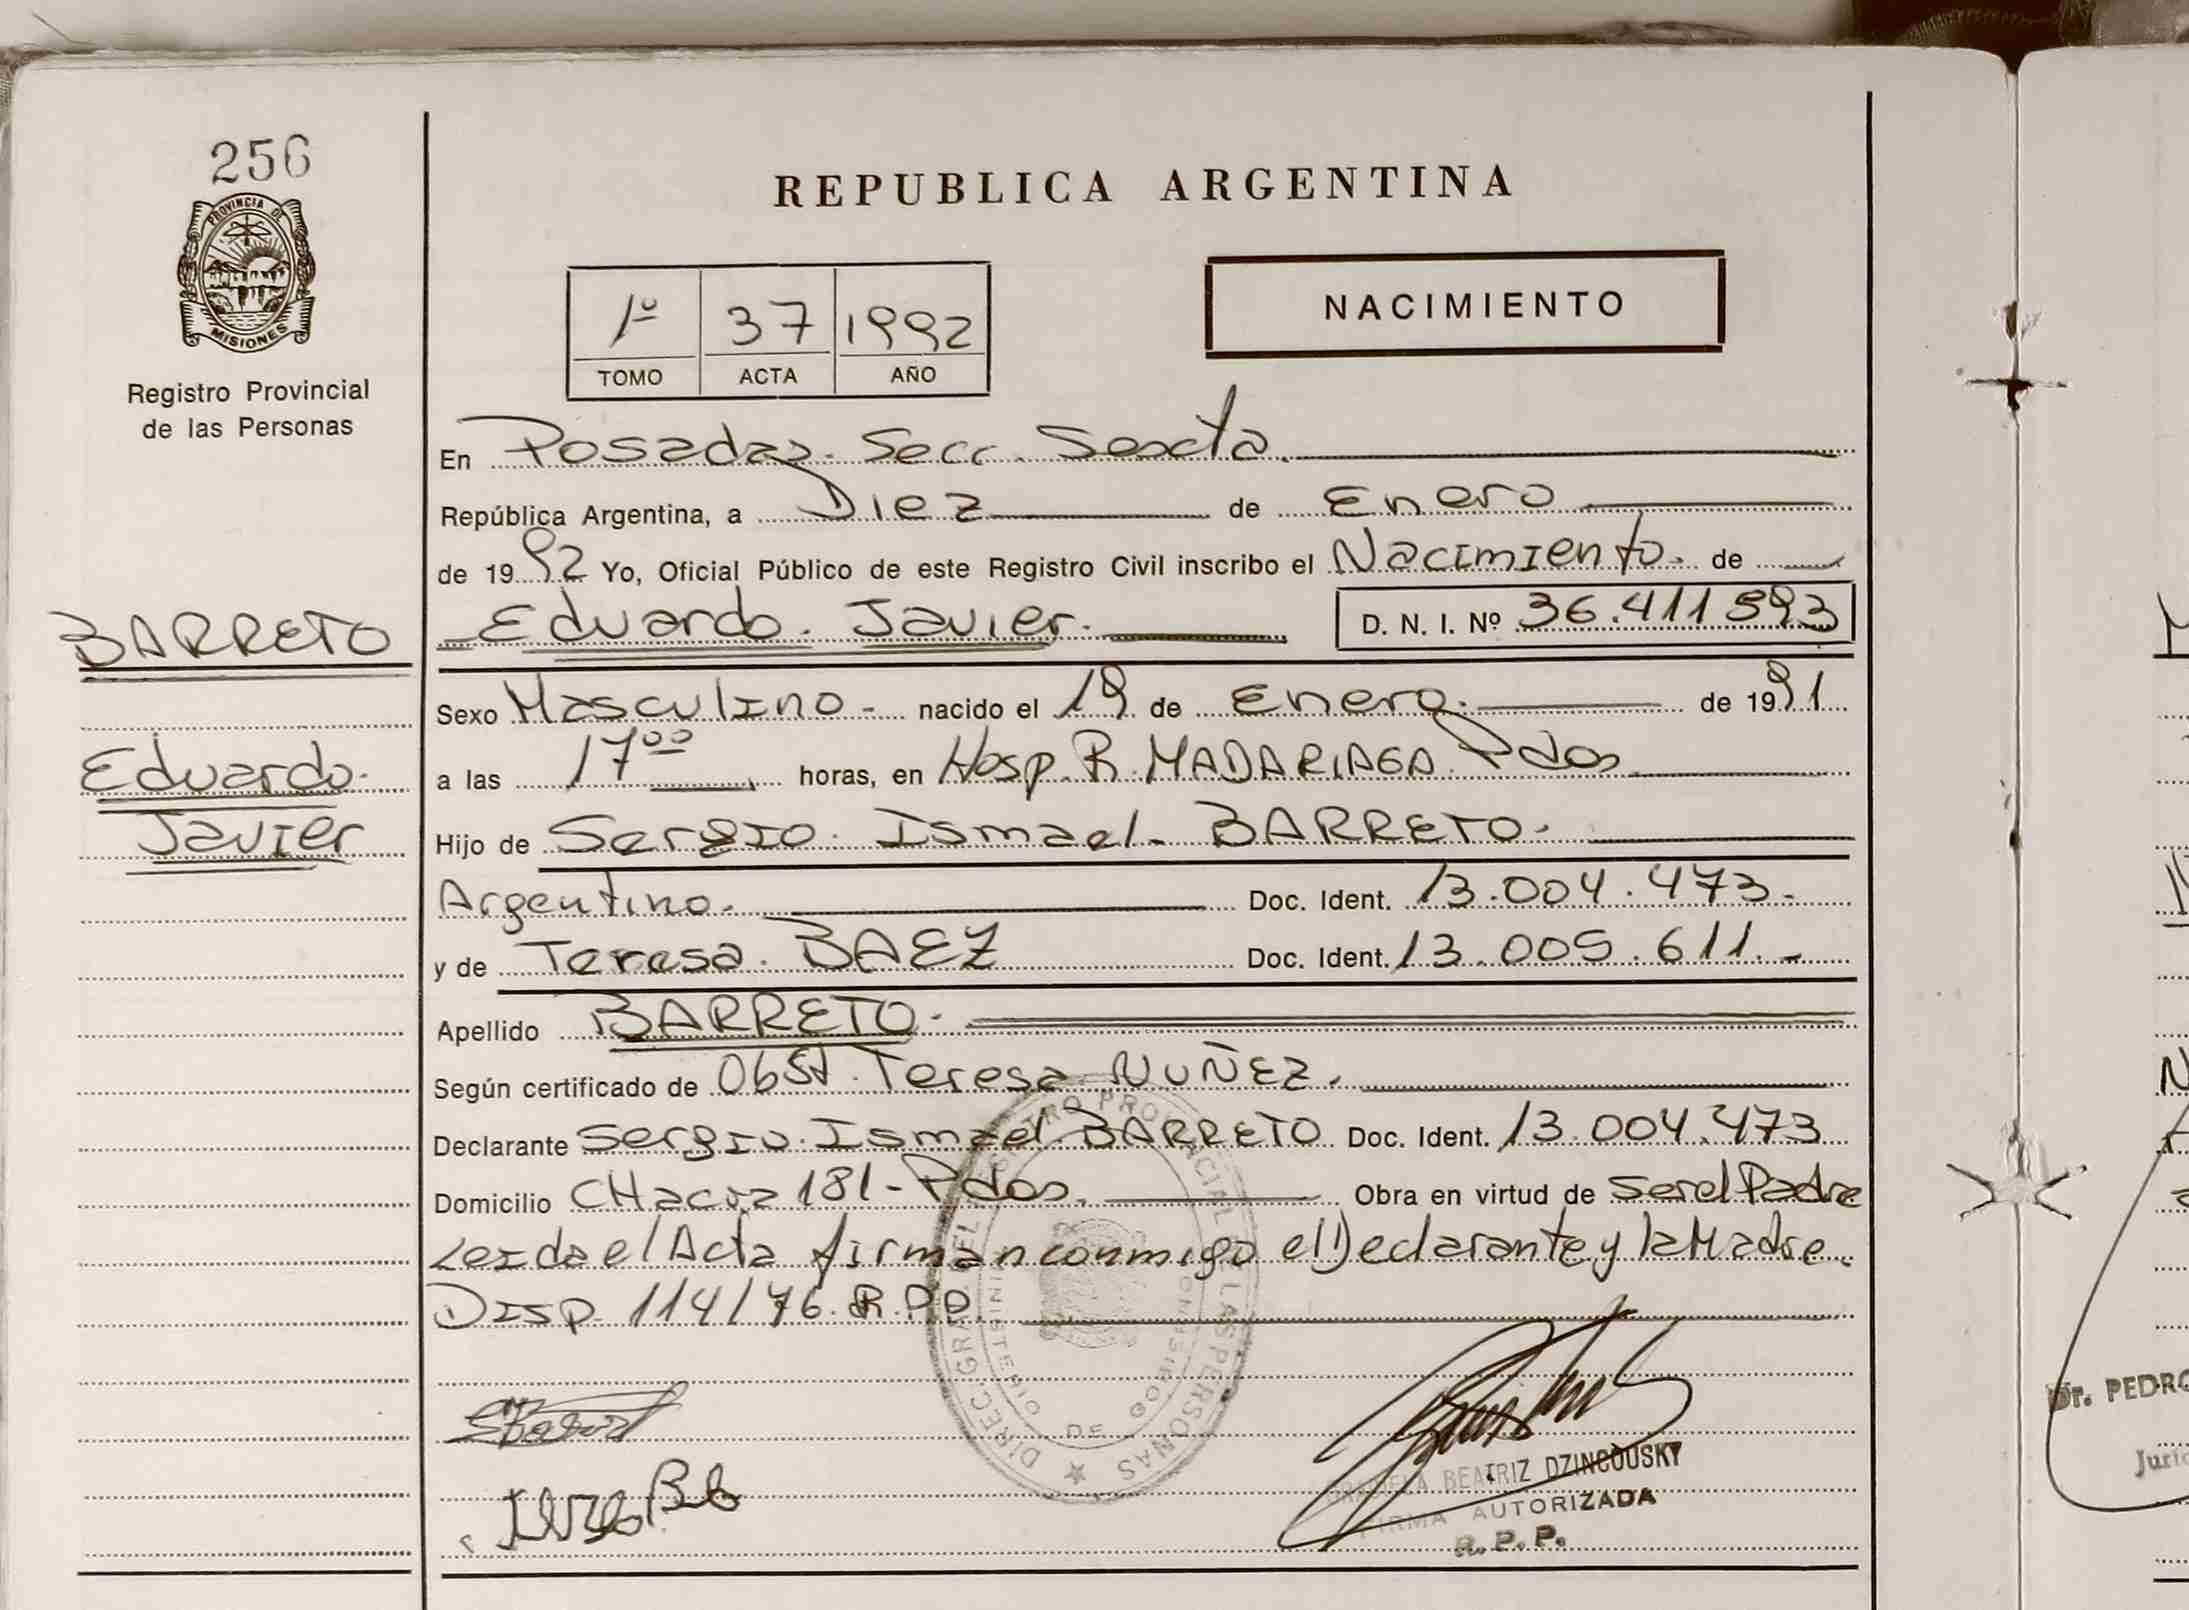 256
PROVINCIA DE
MISIONES
Registro Provincial
de las Personas
BARRETO
Eduardo.
Javier
REPUBLICA ARGENTINA
1º 37 1992
TOMO ACTA AÑO
NACIMIENTO
En Posadas. Secc. Sexta.
República Argentina, a Diez de Enero
de 1992 Yo, Oficial Público de este Registro Civil inscribo el Nacimiento. de
Eduardo. Javier. D. N. I. Nº 36.411593
Sexo Masculino - nacido el 19 de Enero. de 1991
a las 17⁰⁰ horas, en Hosp. R. MADARIAGA Pdas.
Hijo de Sergio. Ismael. BARRETO.
Argentino. Doc. Ident. 13.004.473.
y de Teresa. BAEZ Doc. Ident. 13.005.611.-
Apellido BARRETO.
Según certificado de Obst. Teresa NUÑEZ.
Declarante Sergio. Ismael. BARRETO Doc. Ident. 13.004.473
Domicilio CHacra 181- Pdas. Obra en virtud de ser el Padre
Leida el Acta firman conmigo el Declarante y la Madre.
Disp. 114/76. R.P.P.
DIREC. GRAL. DEL REGISTRO PROVINCIAL DE LAS PERSONAS
MINISTERIO DE GOBIERNO
GRACIELA BEATRIZ DZINCOUSKY
FIRMA AUTORIZADA
R. P. P.
Dr. PEDRO